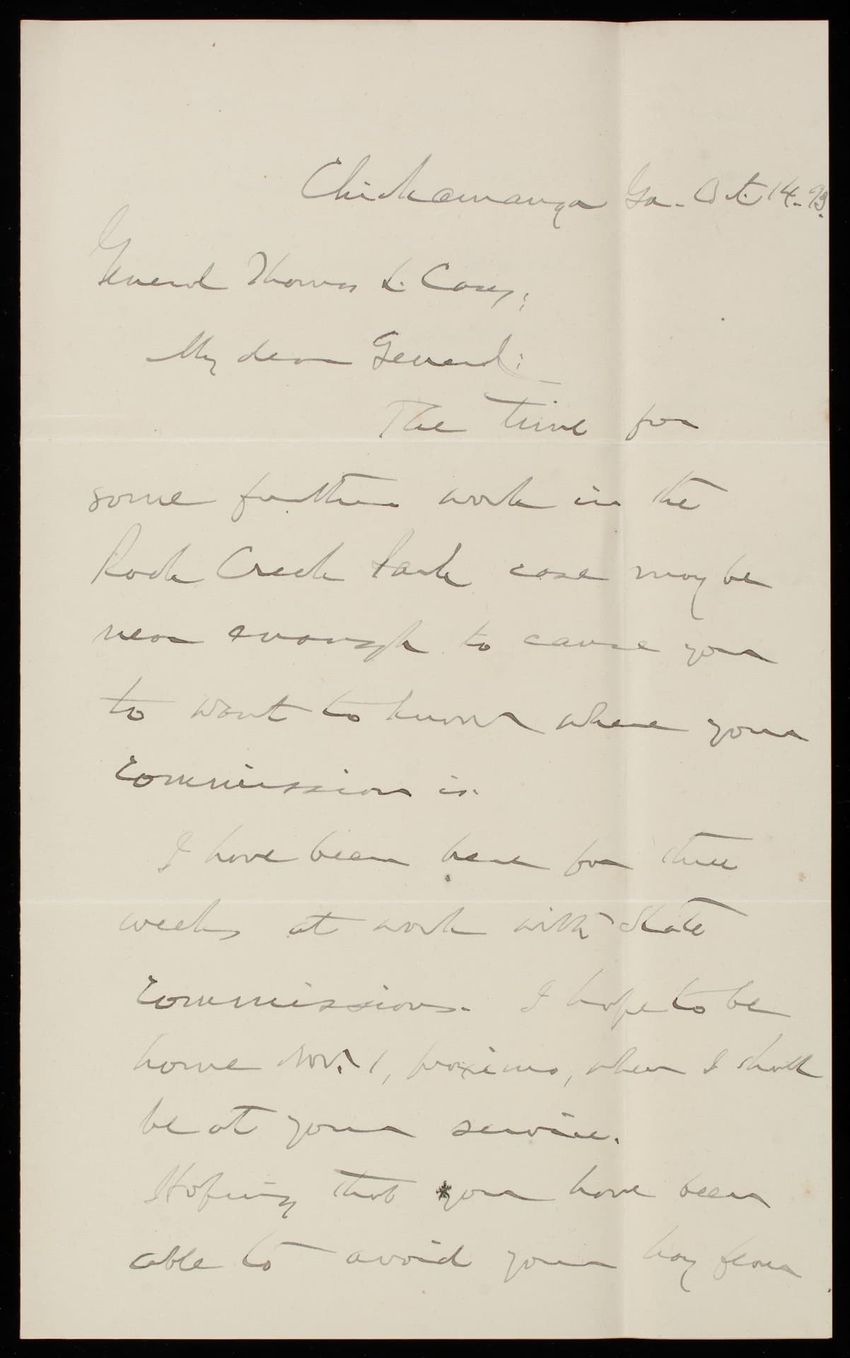 Chickamauga Ga. Oct. 14. 93.
General Thomas L. Casey;
My dear General:
The time for
some further work in the
Rock Creek Park case may be
near enough to cause you
to want to know where your
Commission is.
I have been here for three
weeks at work with State
Commissions. I hope to be
home Nov. 1, proximo, when I shall
be at your service.
Hoping that you have been
able to avoid your hay fever